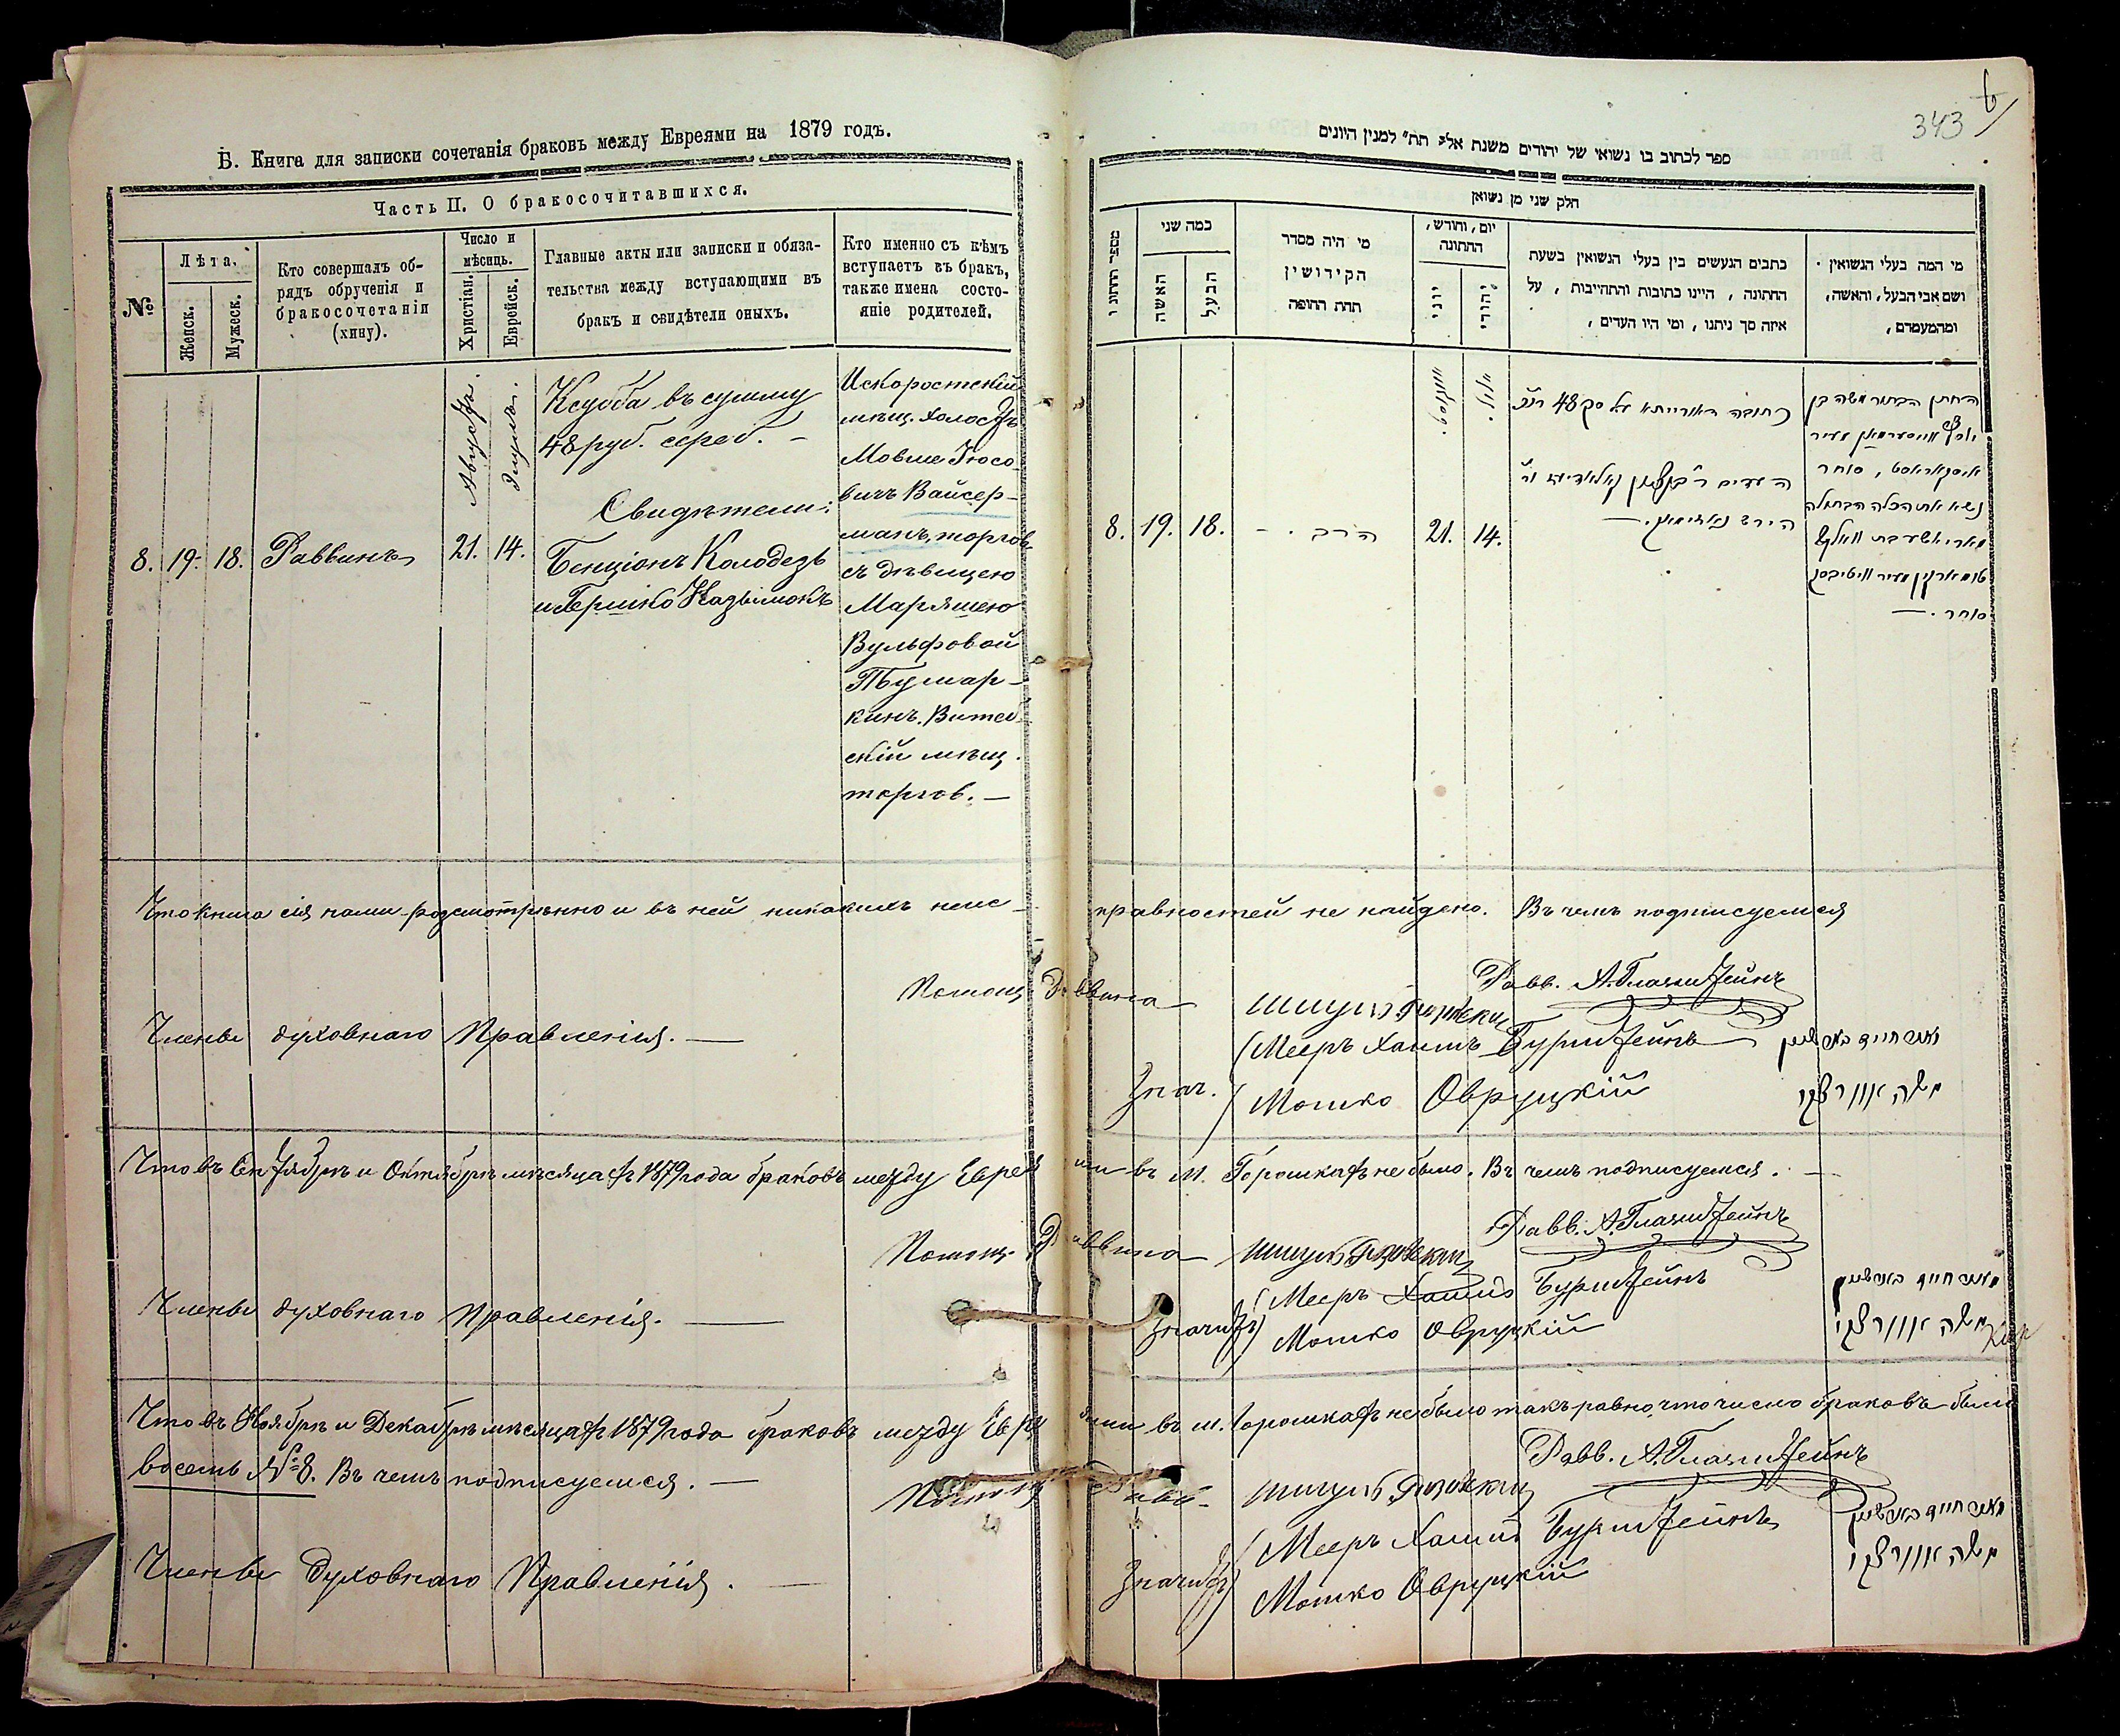 Б. Книга для записки сочетанія браковъ между Евреями на 1879 годъ.
Часть II. О бракосочитавшихся.
№
Лѣта.
Женск.
Мужеск.
Кто совершалъ об-
рядъ обрученія и
бракосочетанія
(хину).
Число и
мѣсяцъ.
Христіан.
Еврейск.
Главные акты или записки и обяза-
тельства между вступающими въ
бракъ и свидѣтели оныхъ.
Кто именно съ кѣмъ
вступаетъ въ бракъ,
также имена состо-
яніе родителей.
8.
19.
18.
Раввинъ
Августа.
21.
Элулъ.
14.
Ксубба въ сумму
48 руб. сереб. –
Свидѣтели:
Бенціонъ Колодезь
и Гершко Назымокъ
Искоростскій
мѣщ. холостъ
Мовше Іосо-
вичъ Вайсер-
манъ, торгов.
съ дѣвицею
Маряшею
Вульфовой
Тумар-
кинъ. Витеб-
скій мѣщ.
торгов. —
343
6
ספר לכתוב בו נשואי של יהודים משנת אלף תת״ למנין היונים
חלק שני מן נשואין
מספר החתונו
כמה שני
האשה
הבעל
מי היה מסדר
הקידושין
תחת החופה
יום, וחודש,
החתונה
יוני
יהודי
כתבים הנעשים בין בעלי הנשואין בשעת
החתונה, היינו כתובות והתחייבות, על
איזה סך ניתנו, ומי היו העדים,
מי המה בעלי הנשואין
ושם אבי הבעל, והאשה,
ומהמעמדם,
8.
19.
18.
הרב. –
אווגוסט.
21.
אלול.
14.
כתובה דאורייתא על סך 48 רוכ
העדים ר׳ בנציון קאלאדיעז ור׳
הירש
החתן הבחור משה בן
יוסף ווייסערמאן מעיר
איסקאראסט, סוחר
נשא את הכלה הבתולה
מאריאשע בת וואלף
טומארקין מעיר וויטיבסק
סוחר. —
Что книга сія нами розсмотрѣнно и въ ней никакихъ неис-
правностей не найдено. Въ чемъ подписуемся
Равв. А. Глазштейнъ
Помощ. Раввина
Члены духовнаго Правленія. —
Мееръ Хаимъ Бурштейнъ
Знач.
Мошко Овруцкій
משה אוורוצקי
Что въ Сентябрѣ и Октябрѣ мѣсяцахъ 1879 года браковъ между Еврея
ми въ м. Горошкахъ не было. Въ чемъ подписуемся. —
Равв. А. Глазштейнъ
Помощ. Раввина
Члены духовнаго Правленія. —
Мееръ Хаимъ Бурштейнъ
Значитъ
Мошко Овруцкій
משה אוורוצקי
Что въ Ноябрѣ и Декабрѣ мѣсяцахъ 1879 года браковъ между Евре
ями въ м. Горошкахъ не было такъ равно, что число браковъ было
восемь № 8. Въ чемъ подписуемся. —
Равв. А. Глазштейнъ
Члены Духовнаго Правленія. —
Мееръ Хаимъ Бурштейнъ
Значитъ
Мошко Овруцкій
משה אוורוצקי